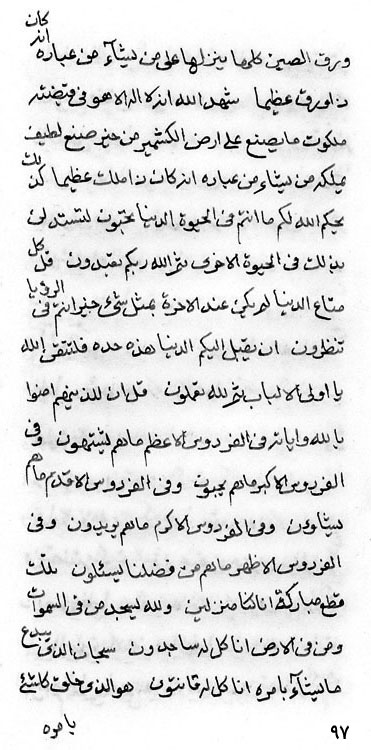 ورق الصين كلها ينزلها على من يشآء من عباده انه كان
ذا ورق عظيما شهد الله انه لا اله الا هو فى قبضته
ملكوت ما يصنع على ارض الكشمير من خير صنع لطيف
يملكه من يشاء من عباده انه كان ذا ملك عظيما كذلك
يحكم الله لكم ما انتم فى الحيوة الدنيا تحبون لتستدلن
بذلك فى الحيوة الاخرى ثم الله ربكم تعبدون قل كل
متاع الدنيا لم يكن عند الاخرة بمثل شئ خير انتم فى الرؤيا
تنظرون ان يقبل اليكم الدنيا هذه حده فلتتقن الله
يا اولى الالباب ثم لله تعملون قل ان للذينهم امنوا
بالله واياته فى الفردوس الاعظم ما هم ليشتهون وفى
الفردوس الاكبر ما هم يحبون وفى الفردوس الاقدم ما هم
يشاؤن وفى الفردوس الاكرم ما هم يريدون وفى
الفردوس الاظهر ما هم من فضلنا يسئلون تلك
قطع مباركة انا كنا منزلين ولله ليسجد من فى السموات
ومن فى الارض انا كل له ساجدون سبحان الذى يبدع
ما يشآء بامره انا كل له قانتون هو الذى خلق كل شئ
بامره
٩٧